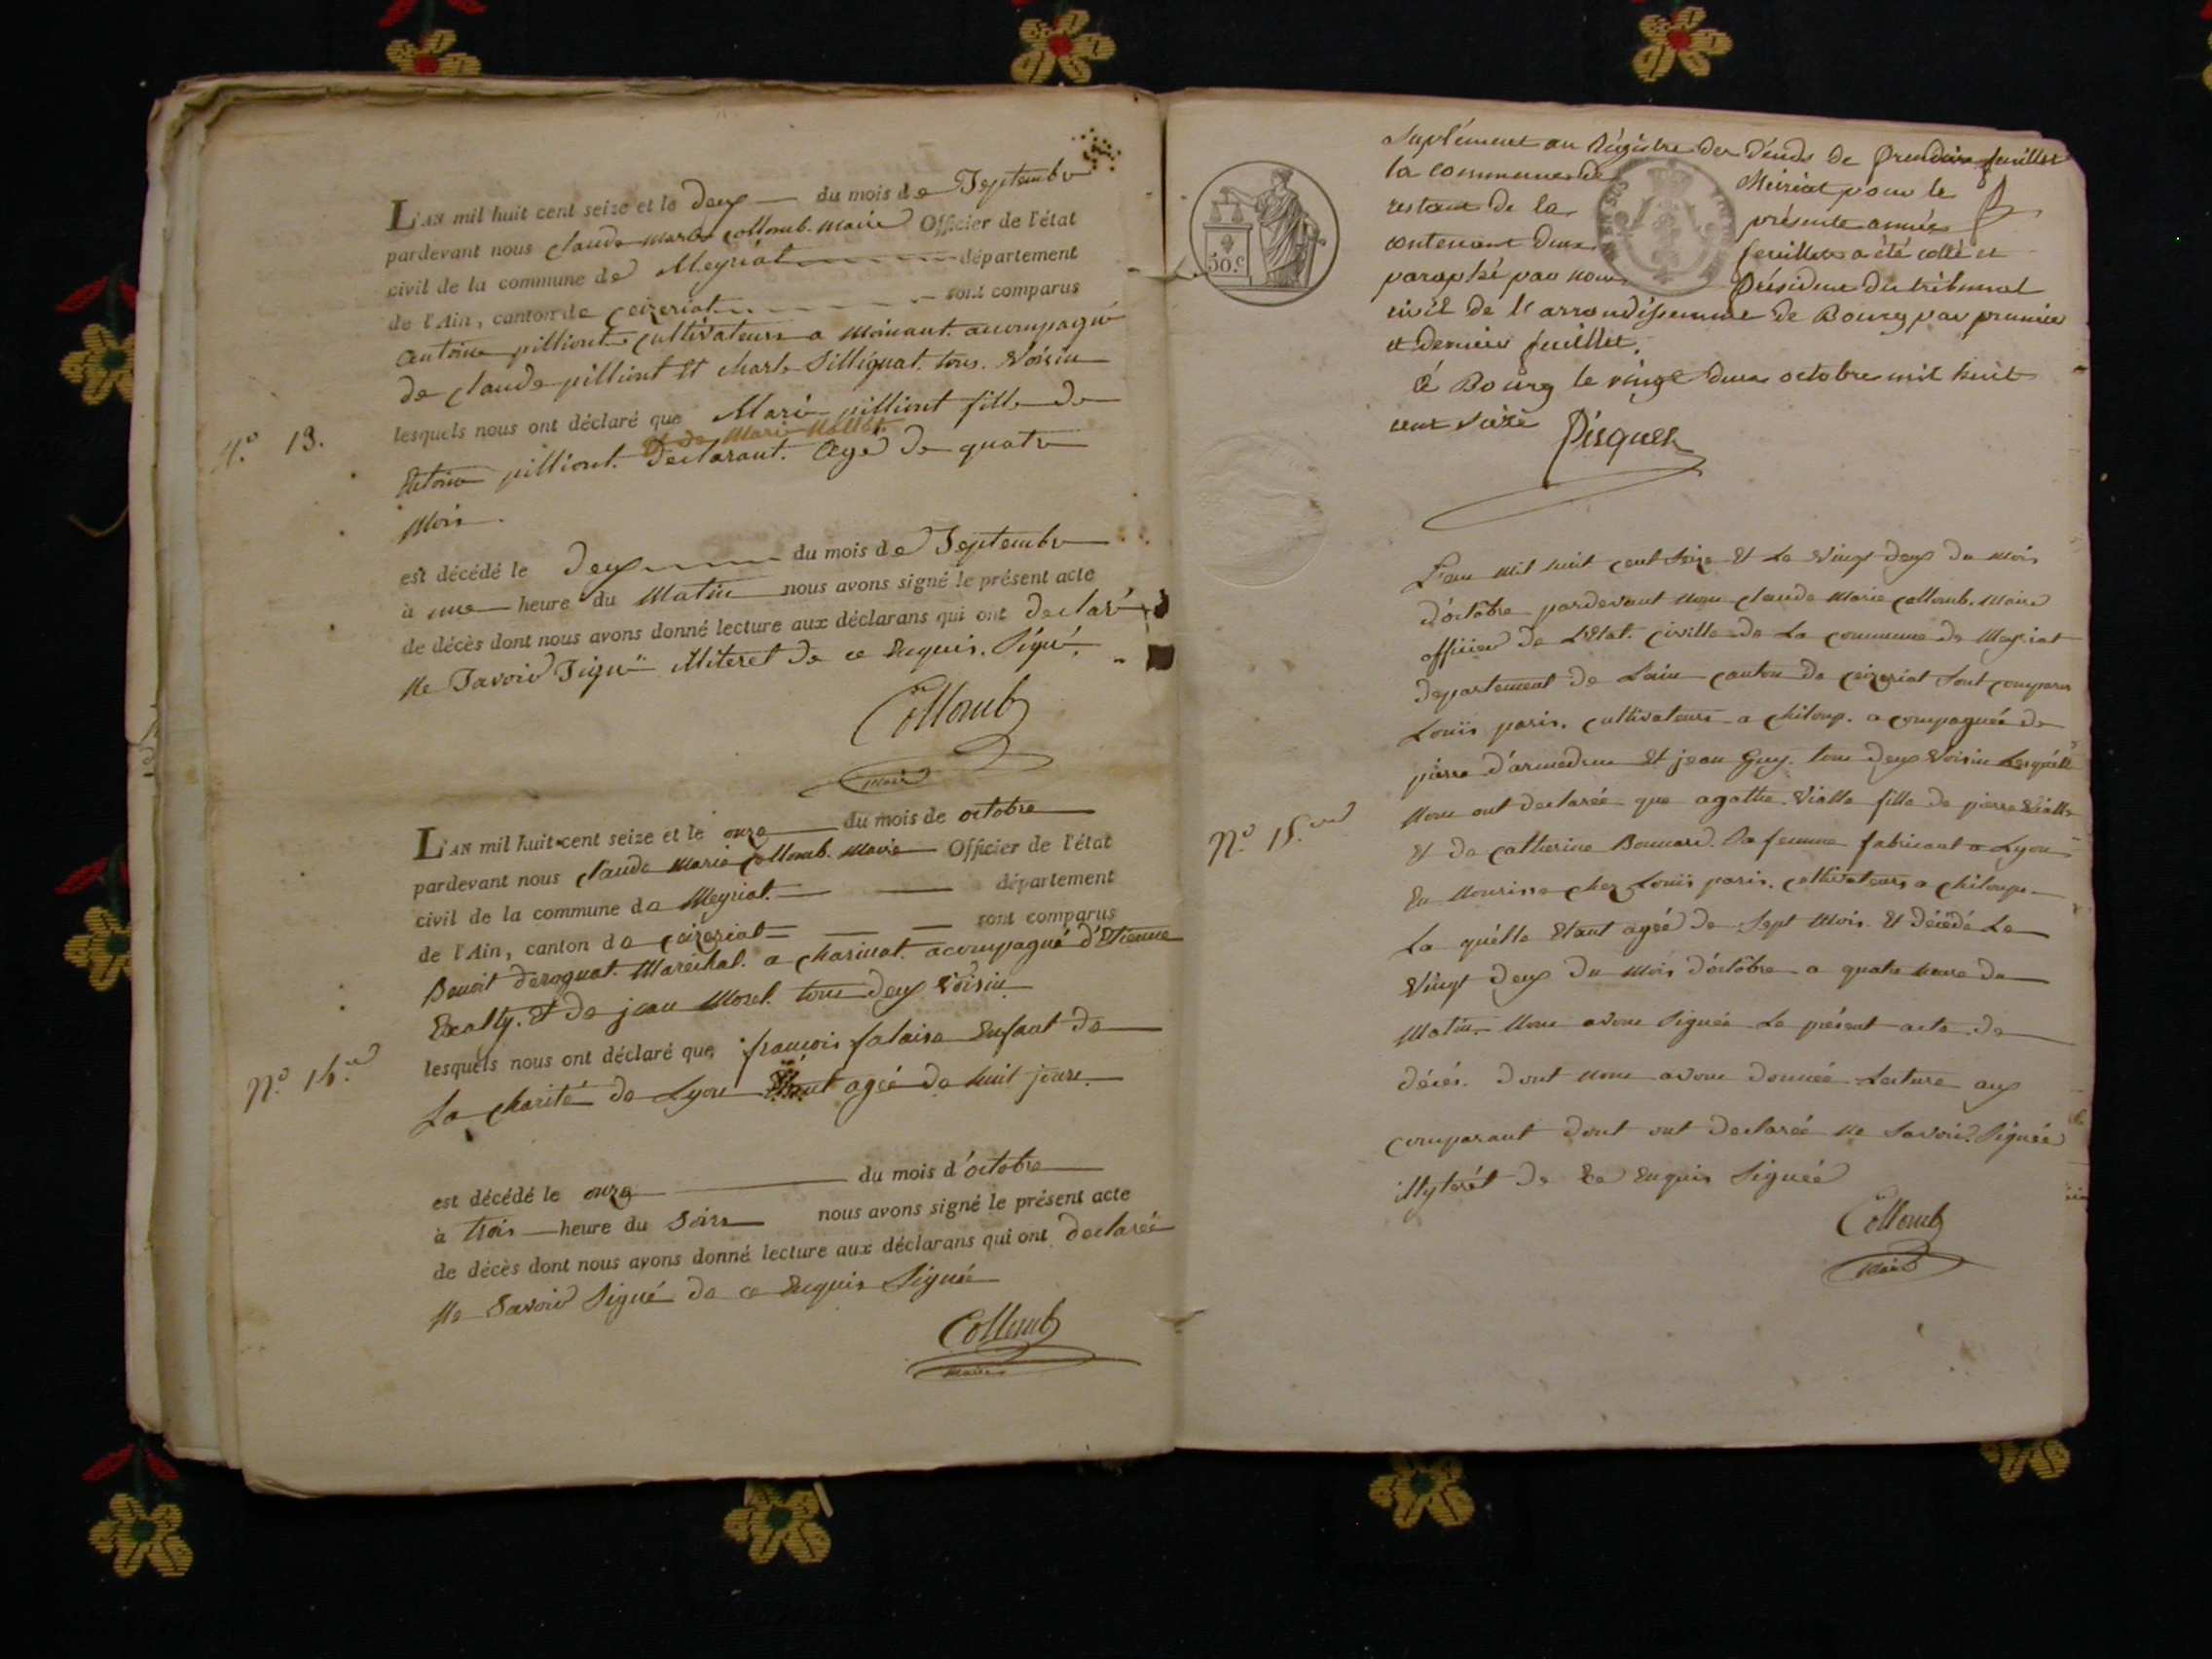 L'AN mil huit cent seize et le deux du mois de Septembre
pardevant nous Claude Marie Collomb. Maire Officier de l'état
civil de la commune de Meyriat département
de l'Ain, canton de Ceizeriat sont comparus
Antoine pilliont cultivateurs a Moinant. acompagné
de Claude pilliont Et Charle Sillignat. tous. Voisin
lesquels nous ont déclaré que Marie pilliont fille de
et de Marie
N.o 13.
Entoine pilliont. Declarant. Agé de quatre
Mois.
est décédé le Deux du mois de Septembre
à une heure du Matin nous avons signé le présent acte
de décès dont nous avons donné lecture aux déclarans qui ont declaré
Ne Savoir Signé Miteret de ce Enquis. Signé.
Collomb
Maire
L'AN mil huit cent seize et le onze du mois de octobre
pardevant nous Claude Marie Collomb. Maire Officier de l'état
civil de la commune de Meyriat. département
de l'Ain, canton de Ceizeriat sont comparus
Benoit deroguat. Maréchal. a Charinat. acompagné d'Etienne
Et de jean Morel. tous deux Voisin
lesquels nous ont déclaré que françois falaise Enfant de
N.o 14.
La Charité de Lyon Etant agée de huit jours.
est décédé le onze du mois d'octobre
à trois heure du Soire nous avons signé le présent acte
de décès dont nous avons donné lecture aux déclarans qui ont declarée
Ne Savoir Signé de ce Enquis Signé
Collomb
Maire
Suplément au Régistre des Décés de premier feuillet
la commune de Meiriat pour le
restant de la présente année
contenant deux feuillets a été cotté et
paraphé par nous Président du tribunal
civil de l'arrondissement de Bourg par premier
et dernier feuillet.
à Bourg le vingt deux octobre mil huit
cent seize
Pisquet
50.c
L'an mil huit cent Seize Et Le Vingt deux du Mois
d'octôbre pardevant Nous Claude Marie Collomb. Maire
officier de L'Etat. Civille de La Commune de Meyriat
departement de Lain canton de Ceizeriat Sont comparus
Louis paris. cultivateurs a Chiloup. acompagnée de
pierre d'armedrun Et jean Guy. tous deux Voisin Lesquélle
Nous ont declarée que agathe. Vialle fille de pierre Vialle
N.o 15.
Et de Catherine Bonnard. Sa femme fabricant a Lyon
En Nourisse chez Louis paris. cultivateurs a Chiloup
La quélle Etant agée de Sept Mois. Et décédé Le
Vingt deux du Mois d'octôbre a quatre heure du
Matin. Nous avons Signée Le présent acte de
décés. dont Nous avons donnée Lecture aux
comparant dont ont declarée ne Savoir Signée
Myterét de Ce Enquis Signéé
Collomb
Maire